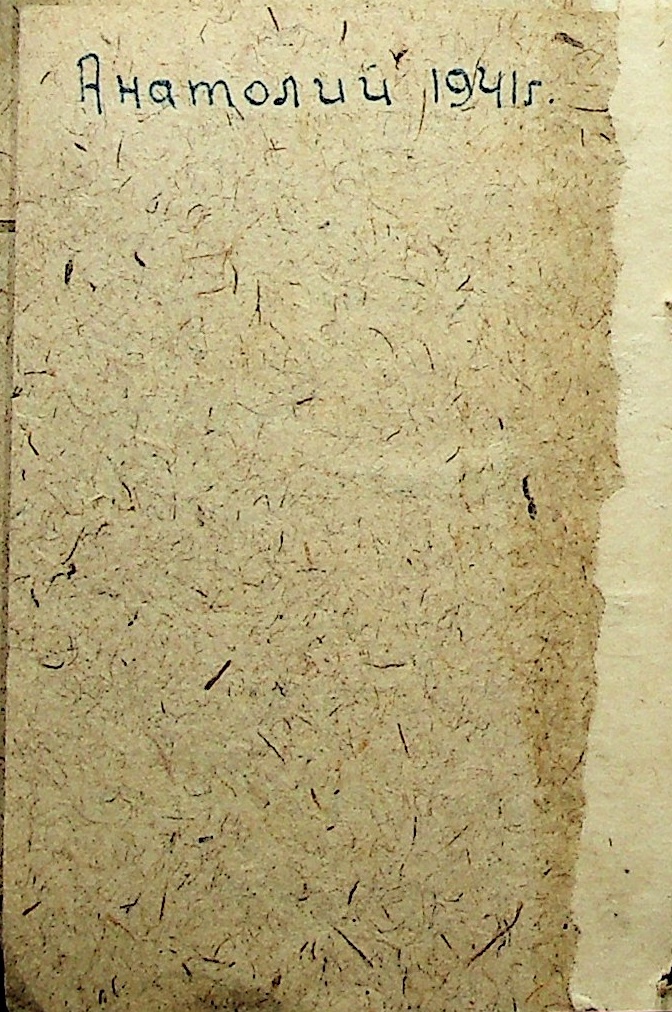 Анатолий 1941г.